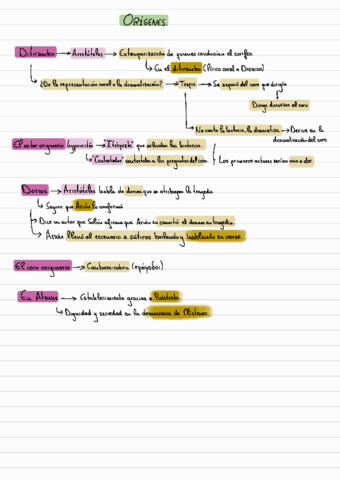 ORÍGENES
Ditirambo → Aristóteles → Extemporización de quienes conducían el coreo.
↳ En el ditirambo (lírica coral a Dioniso)
↳ ¿De la representación coral a la dramatización? → Tespis → Se separó del coro que dirigía
Dirige discursos al coro
No canta la historia, la dramatiza → Deriva en la dramatización del coro.
El actor originario hypocrités → "Intérprete" que actuaba las historias.
↳ "Contestador" contestaba a las preguntas del coro.
Los primeros actores serían uno o dos.
Dorios → Aristóteles habla de dorios que se atribuyen la tragedia
↳ Seguro que Arión lo conformó
↳ Dice un autor que Solón afirma que Arión en convirtió el drama en tragedia.
↳ Arión llevó al escenario a sátiros bailando y hablando en verso.
El coro originario → Cantores-cabra (τράγῳδοι)
En Atenas → Establecimiento gracias a Pisístrato.
↳ Dignidad y seriedad en la democracia de Clístenes.